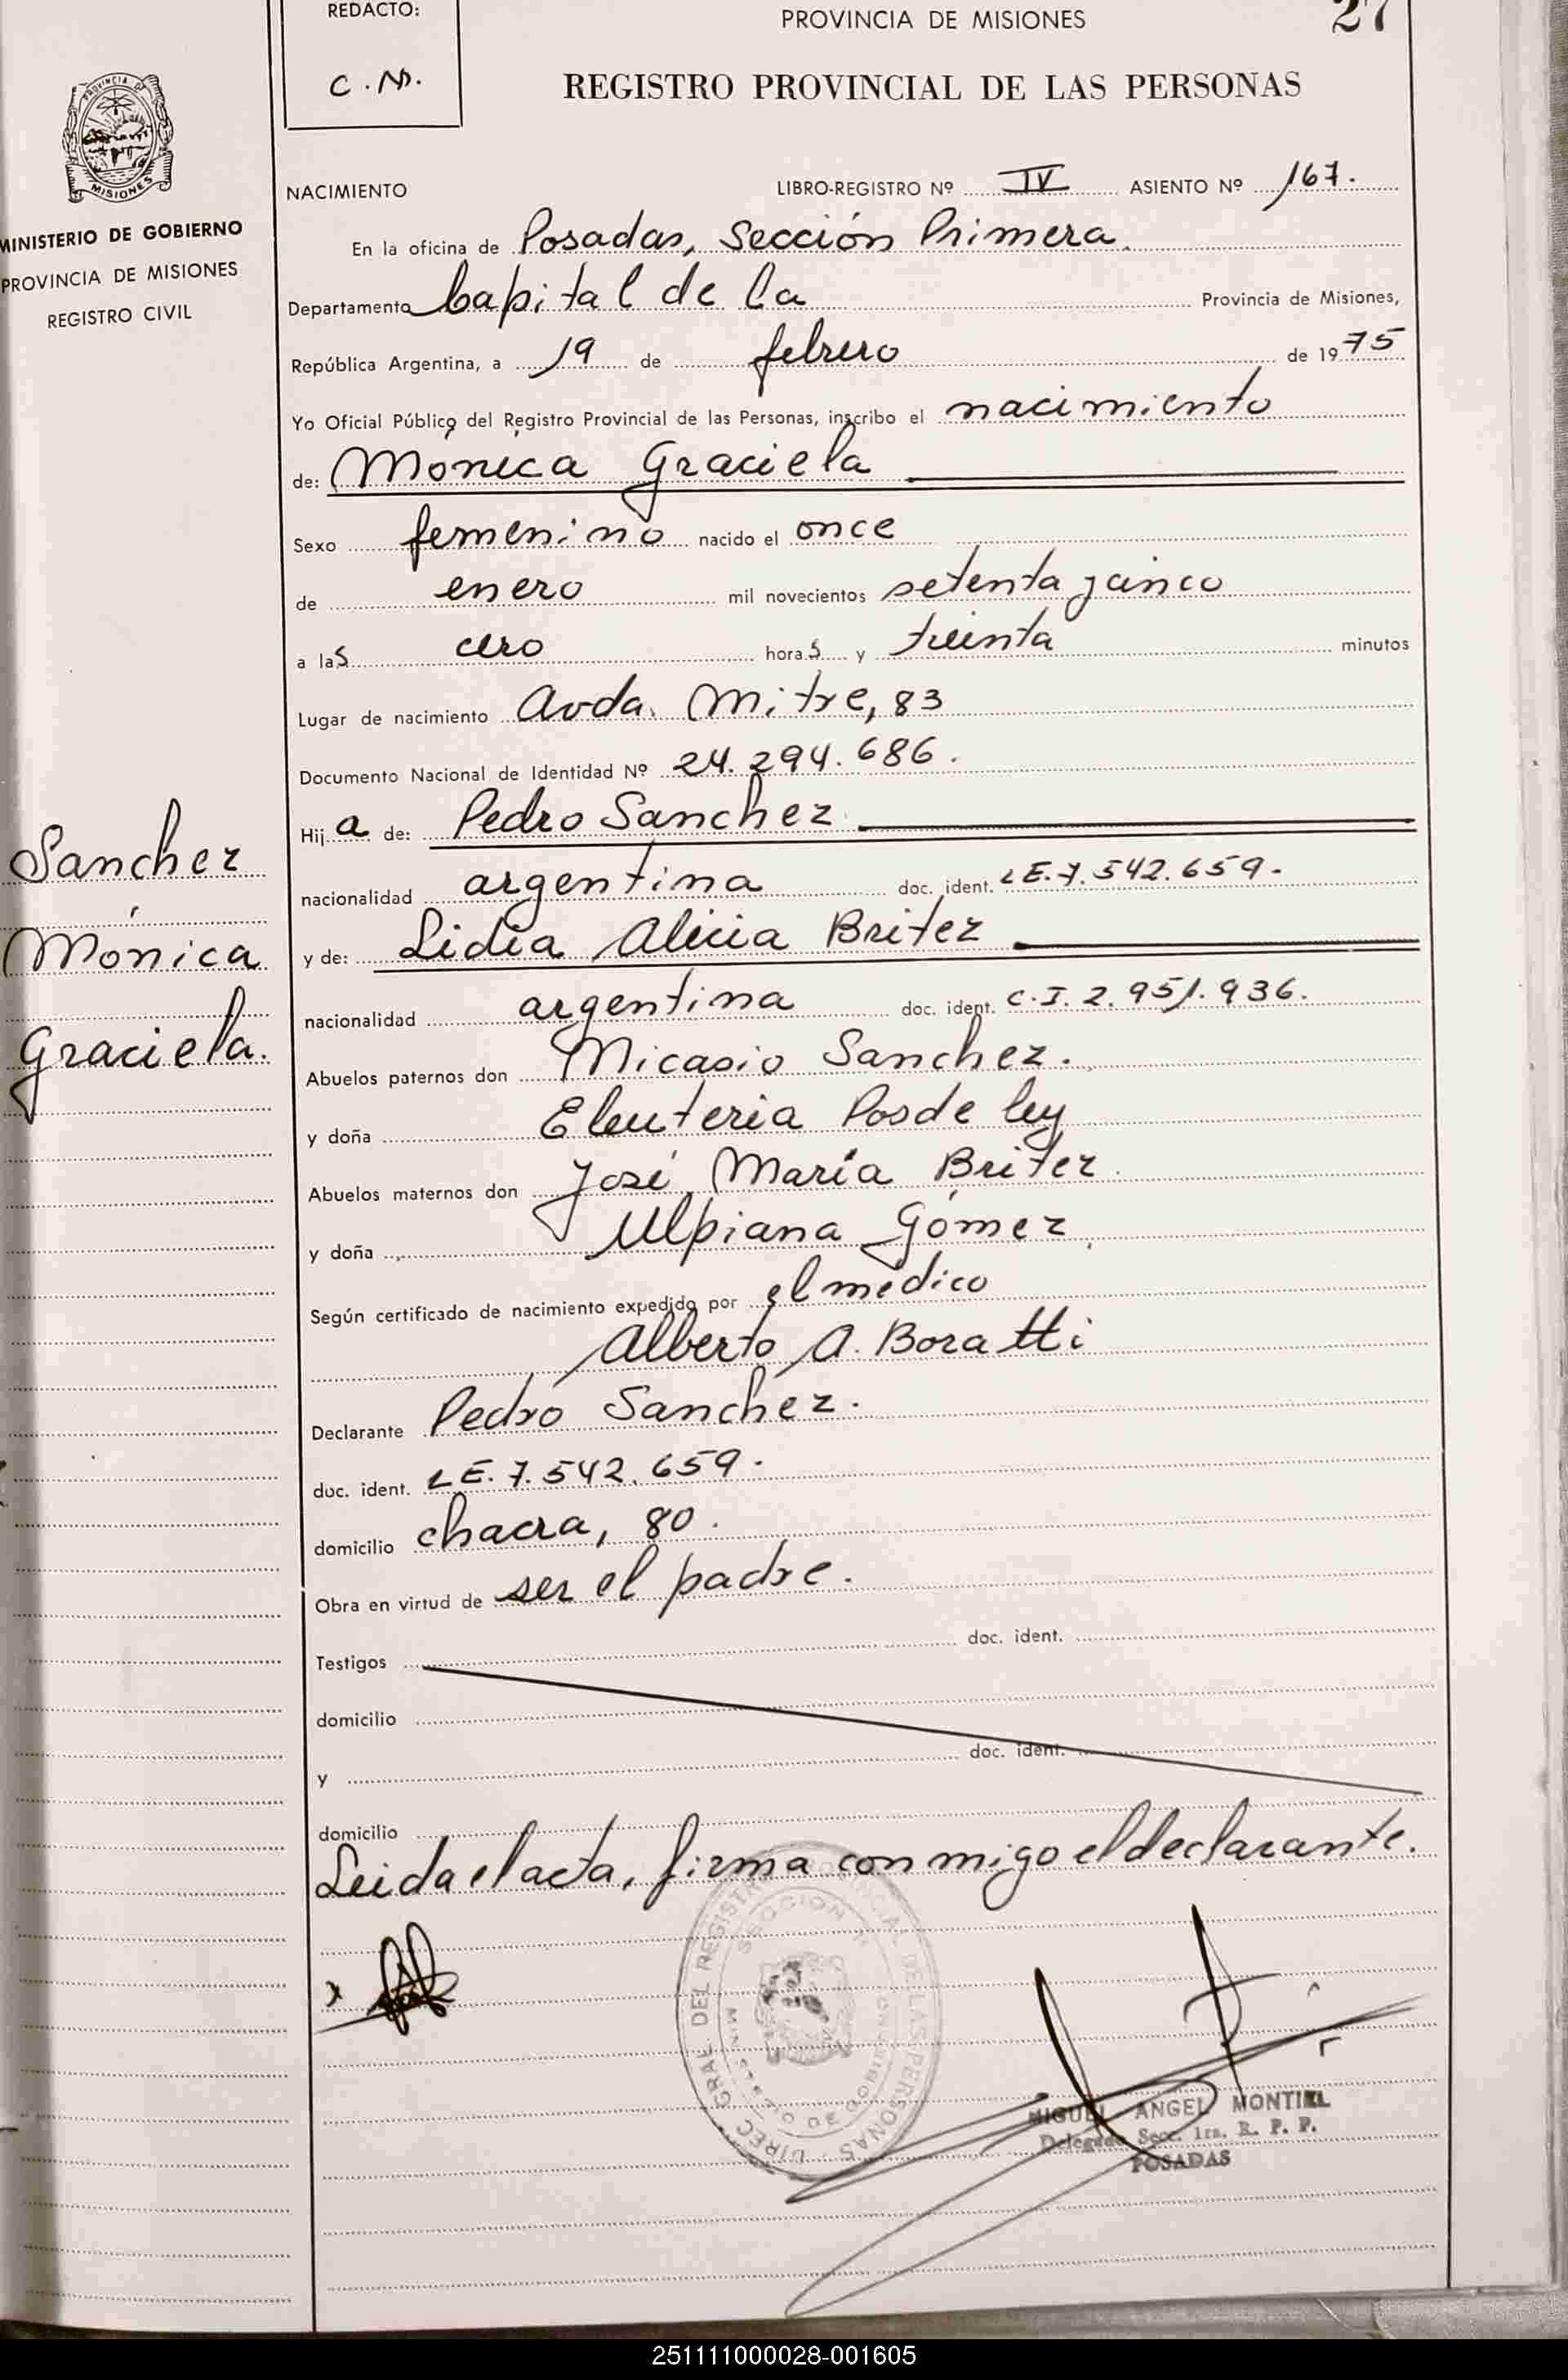 REDACTO:
C.M.
PROVINCIA DE MISIONES
27
REGISTRO PROVINCIAL DE LAS PERSONAS
PROVINCIA D
MISIONES
MINISTERIO DE GOBIERNO
PROVINCIA DE MISIONES
REGISTRO CIVIL
NACIMIENTO LIBRO-REGISTRO Nº IV ASIENTO Nº 167.
En la oficina de Posadas, Sección Primera.
Departamento Capital de la Provincia de Misiones,
República Argentina, a 19 de febrero de 1975
Yo Oficial Público del Registro Provincial de las Personas, inscribo el nacimiento
de: Mónica Graciela
Sexo femenino nacido el once
de enero mil novecientos setenta y cinco
a las cero horas y treinta minutos
Lugar de nacimiento Avda. Mitre, 83
Documento Nacional de Identidad Nº 24.294.686.
Hija de: Pedro Sanchez
nacionalidad argentina doc. ident. LE.7.542.659.
y de: Lidia Alicia Britez
nacionalidad argentina doc. ident. C.I. 2.951.936.
Abuelos paternos don Nicasio Sanchez.
y doña Eleuteria Posdeley
Abuelos maternos don José María Britez.
y doña Ulpiana Gómez
Según certificado de nacimiento expedido por el médico
Alberto A. Boratti
Declarante Pedro Sanchez.
doc. ident. LE.7.542.659.
domicilio chacra, 80.
Obra en virtud de ser el padre.
Testigos doc. ident.
domicilio
y doc. ident.
domicilio
Leida el acta, firma conmigo el declarante.
Sanchez
Mónica
Graciela.
DIREC. GRAL. DEL REGISTRO PROVINCIAL DE LAS PERSONAS
SECCION
MINISTERIO DE GOBIERNO
MIGUEL ANGEL MONTIEL
Delegado Secc. 1ra. R. P. P.
POSADAS
251111000028-001605